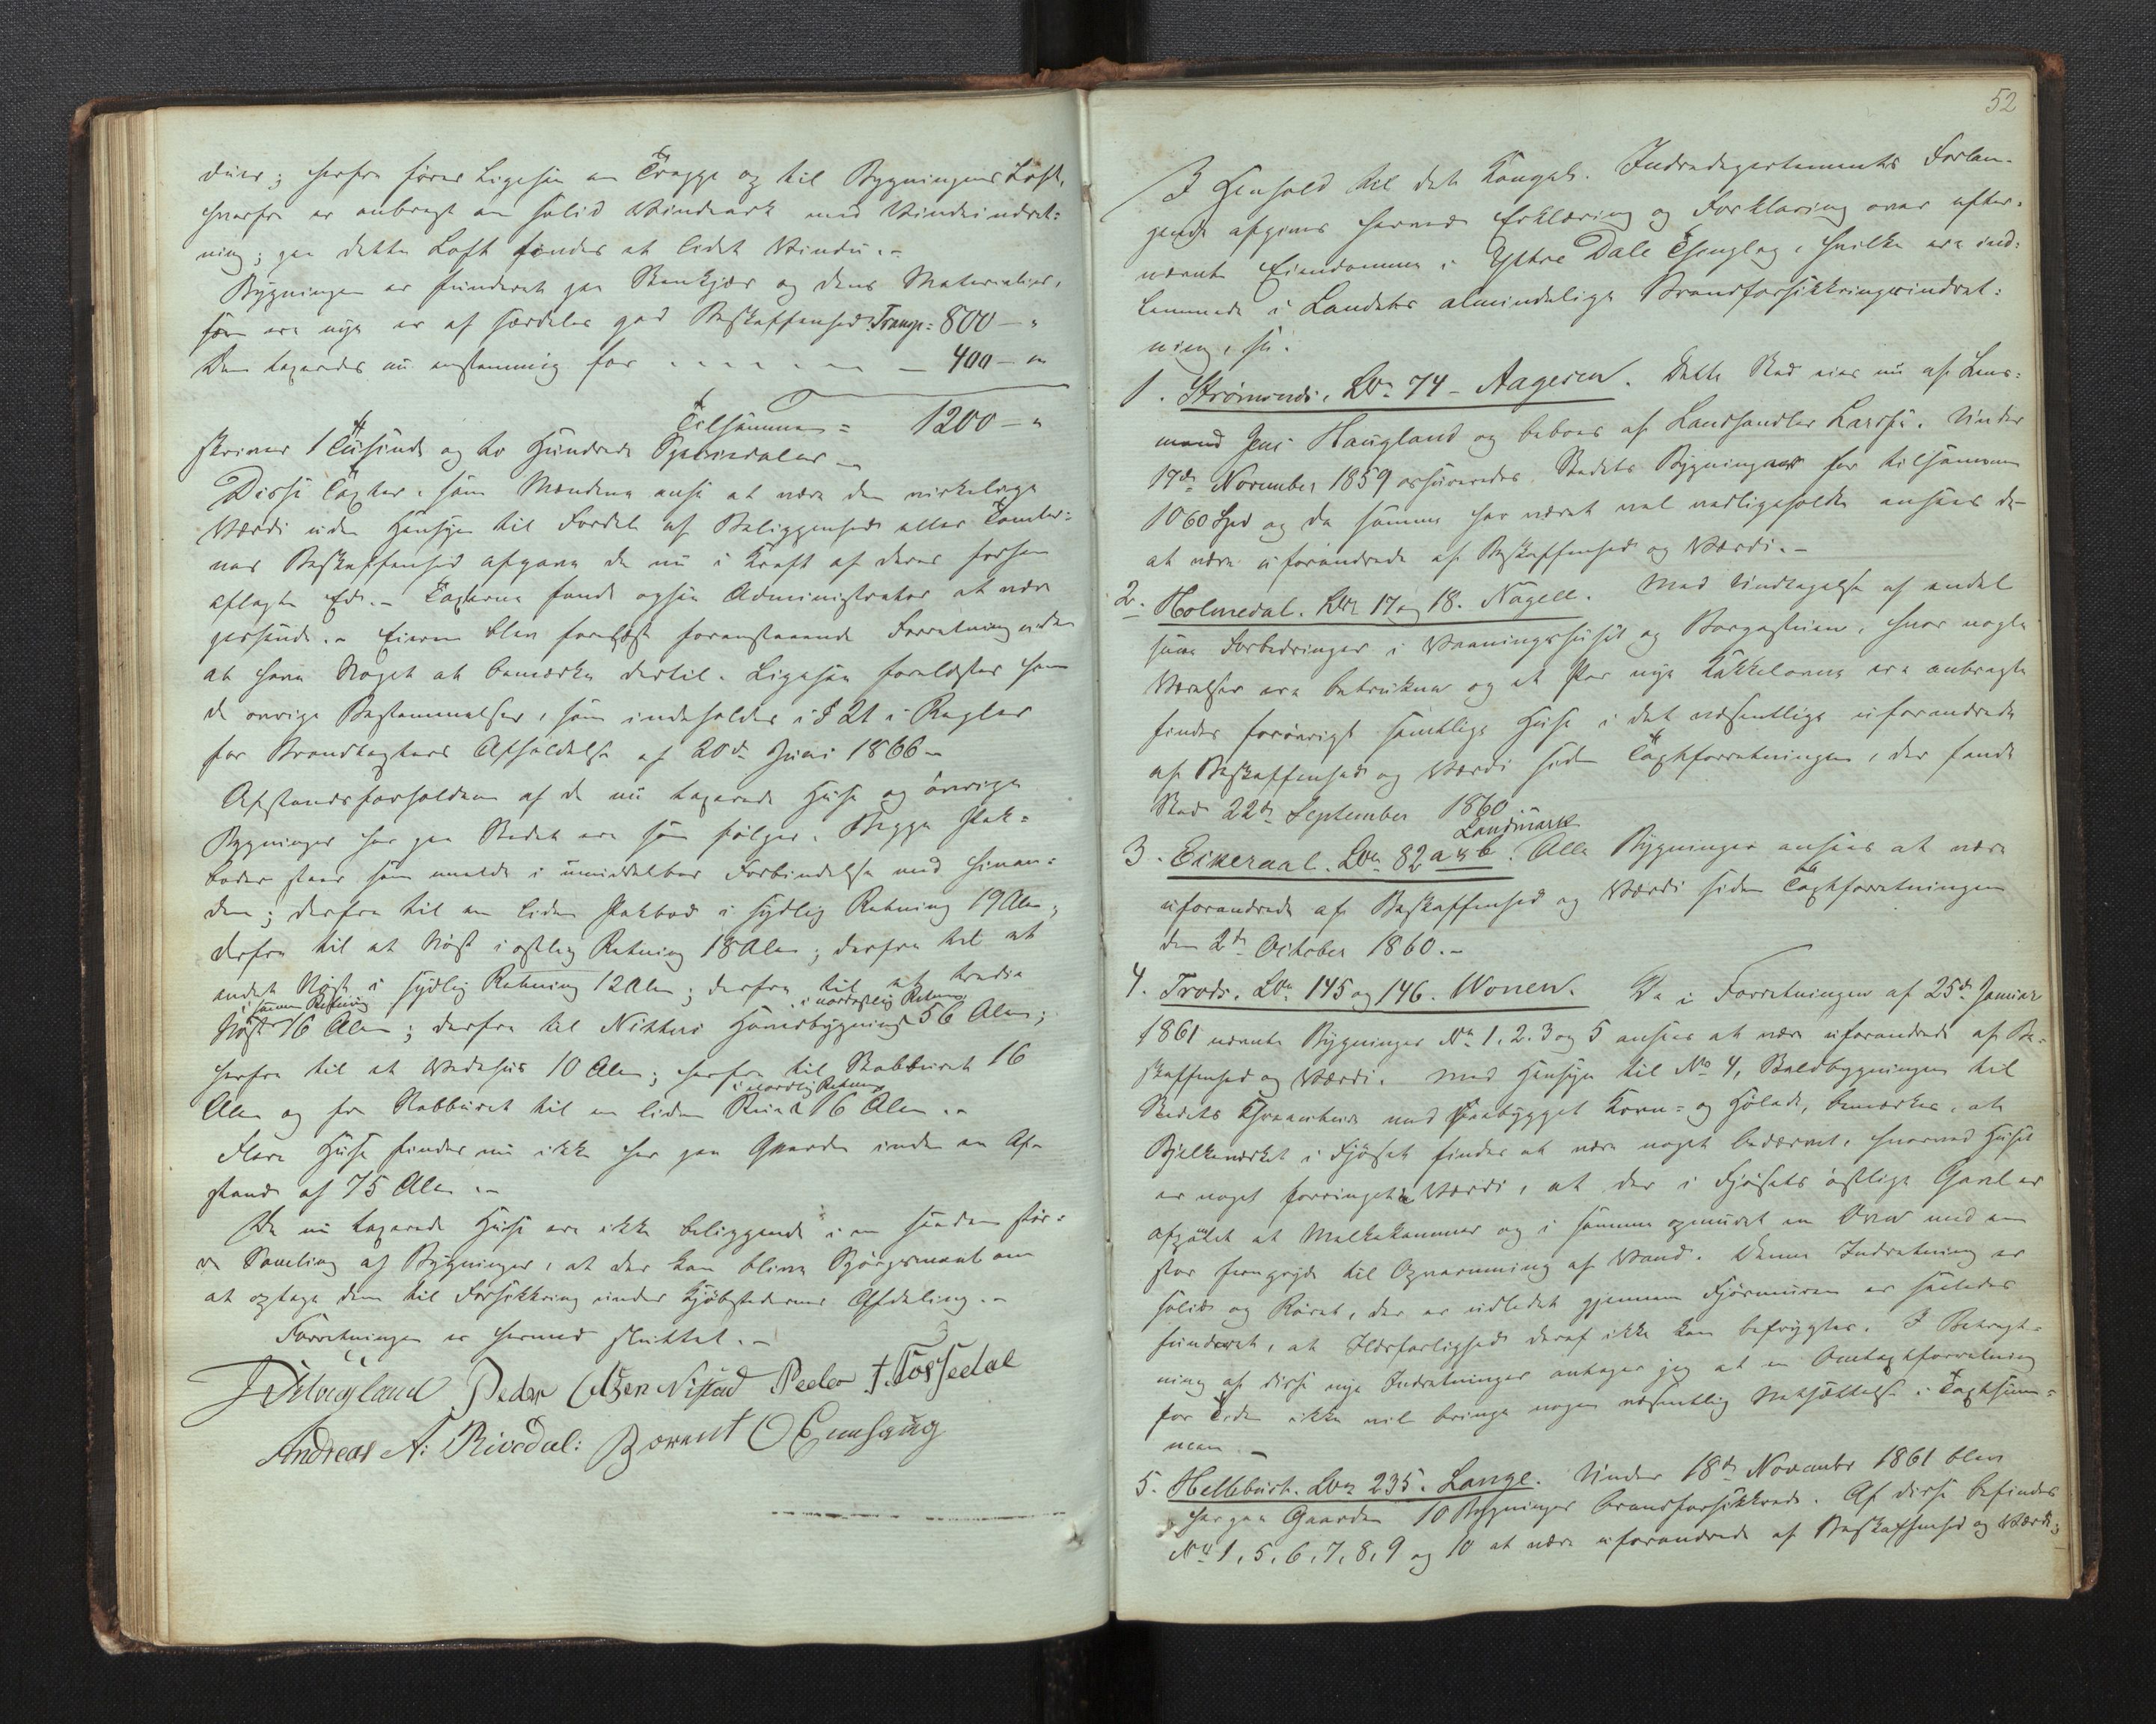 duer; herfra fører ligesaa en Trappe op til Bygningens Loft,
hvorfra er anbragt en solid Vindeark med Vindeindret-
ning; paa dette Loft findes et lidet Vindu.-
Bygningen er funderet paa Stenkjær og dens Materialier,
som ere nye er af særdeles god Beskaffenhed. Transp: 800 — "
Den taxeredes nu enstemmig for - - - - - - 400 — "
Tilsammen = 1200 — "
skriver 1 Tusinde og to Hundrede Speciedaler —
Disse Taxter, som Mændene anse at være den virkelige
Værdi uden Hensyn til Fordel af Beliggenhed eller Tomter-
nes Beskaffenhed afgave de nu i Kraft af deres forhen
aflagte Ed.- Taxterne fandt ogsaa Administrator at være
passende.- Eieren blev forelæst foranstaaende Forretning uden
at have Noget at bemærke dertil. Ligesaa forelæstes ham
de øvrige Bestemmelser, som indeholdes i § 21 i Regler
for Brandtaxters Afholdelse af 20de Juni 1866 -
Afstandsforholdene af de nu taxerede Huse og øvrige
Bygninger her paa Stedet ere som følger. Begge Pak-
boder staar som meldt i umiddelbar Forbindelse med hinan-
den; derfra til en liden Pakbod i sydlig Retning 19 Alen;
derfra til et Nøst i østlig Retning 18 Alen; derfra til et
andet Nøst i sydlig Retning 12 Alen; derfra til et tredie
i samme Retning i nordøstlig Retning
Nøst 16 Alen; derfra til Nitters Hovedbygning 56 Alen;
herfra til et Vedehus 10 Alen; herfra til Stabburet 16
i nordlig Retning
Alen og fra Stabburet til en liden 16 Alen.-
Flere Huse findes nu ikke her paa Gaarden inden en Af-
stand af 75 Alen.-
De nu taxerede Huse ere ikke beliggende i en saadan stør-
re Samling af Bygninger, at der kan blive Spørgsmaal om
at optage dem til Forsikkring under Kjøbstædernes Afdeling.-
Forretningen er hermed sluttet.-
J Haugland Peder Olsen Nistad Peder T. Tossedal
Andreas A: Rivedal: Berent O Engehaug
52
I Henhold til det Kongel. Indredepartements Forlan-
gende afgives herved Erklæring og Forklaring over efter-
nævnte Eiendomme i Yttre Dale Thinglag, hvilke ere ind-
lemmede i Landets almindelige Brandforsikkringsindret-
ning, saa.
1. Strømsnes, Lno 74 - Aagesen. Dette Sted eies nu af Lens-
mand Jens Haugland og beboes af Landhandler Lassen. Under
17de November 1859 assureredes Stedets Bygninger for tilsammen
1060 Spd og da samme har været vel vedligeholdte ansees de
at være uforandrede af Beskaffenhed og Værdi.-
2. Holmedal. Lno 17 og 18. Nagell. Med Undtagelse af endel
smaa Forbedringer i Vaaningshuset og Borgestuen, hvor nogle
Værelser ere betrukne og et Par nye Kakkelovne ere anbragte
findes forøvrigt samtlige Huse i det væsentlige uforandrede
af Beskaffenhed og Værdi siden Taxtforretningen, der fandt
Sted 22de September 1860.
Landmark
3. Eikeraal. Lno 82 a & b. Alle Bygninger ansees at være
uforandrede af Beskaffenhed og Værdi siden Taxtforretningen
den 2de October 1860.-
4. Trods. Lno 145 og 146. Wonen. De i Forretningen af 25de Januar
1861 nævnte Bygninger No 1, 2. 3 og 5 ansees at være uforandrede af Be-
skaffenhed og Værdi. Med Hensyn til No 4, Staldbygningen til
Stedets med tilbygget Korn- og Hølade, bemærkes, at
Bjelkeværket i Fjøset findes at være noget bedærvet, hvorved Huset
er noget forringet i Værdi, at der i Fjøsets østlige Gavel er
afpælet et Melkekammer og i samme opmuret en Ovn med en
stor Jerngryde til Opvarmning af Vand. Denne Indretning er
solid og Røret, der er udledet gjennem Fjøsmuren er saaledes
funderet, at Ildsfarlighed deraf ikke kan befrygtes. I Betragt-
ning af disse nye Indretninger antager jeg at en Omtaxtforretning
for Tiden ikke vil bringe nogen væsentlig Nedsættelse i Taxtsum-
men.-
5. Hellebust. Lno 235. Lange. Under 18de November 1861 blev
her paa Gaarden 10 Bygninger brandforsikkrede. Af disse befindes
No 1, 5, 6, 7, 8, 9 og 10 at være uforandrede af Beskaffenhed og Værdi;